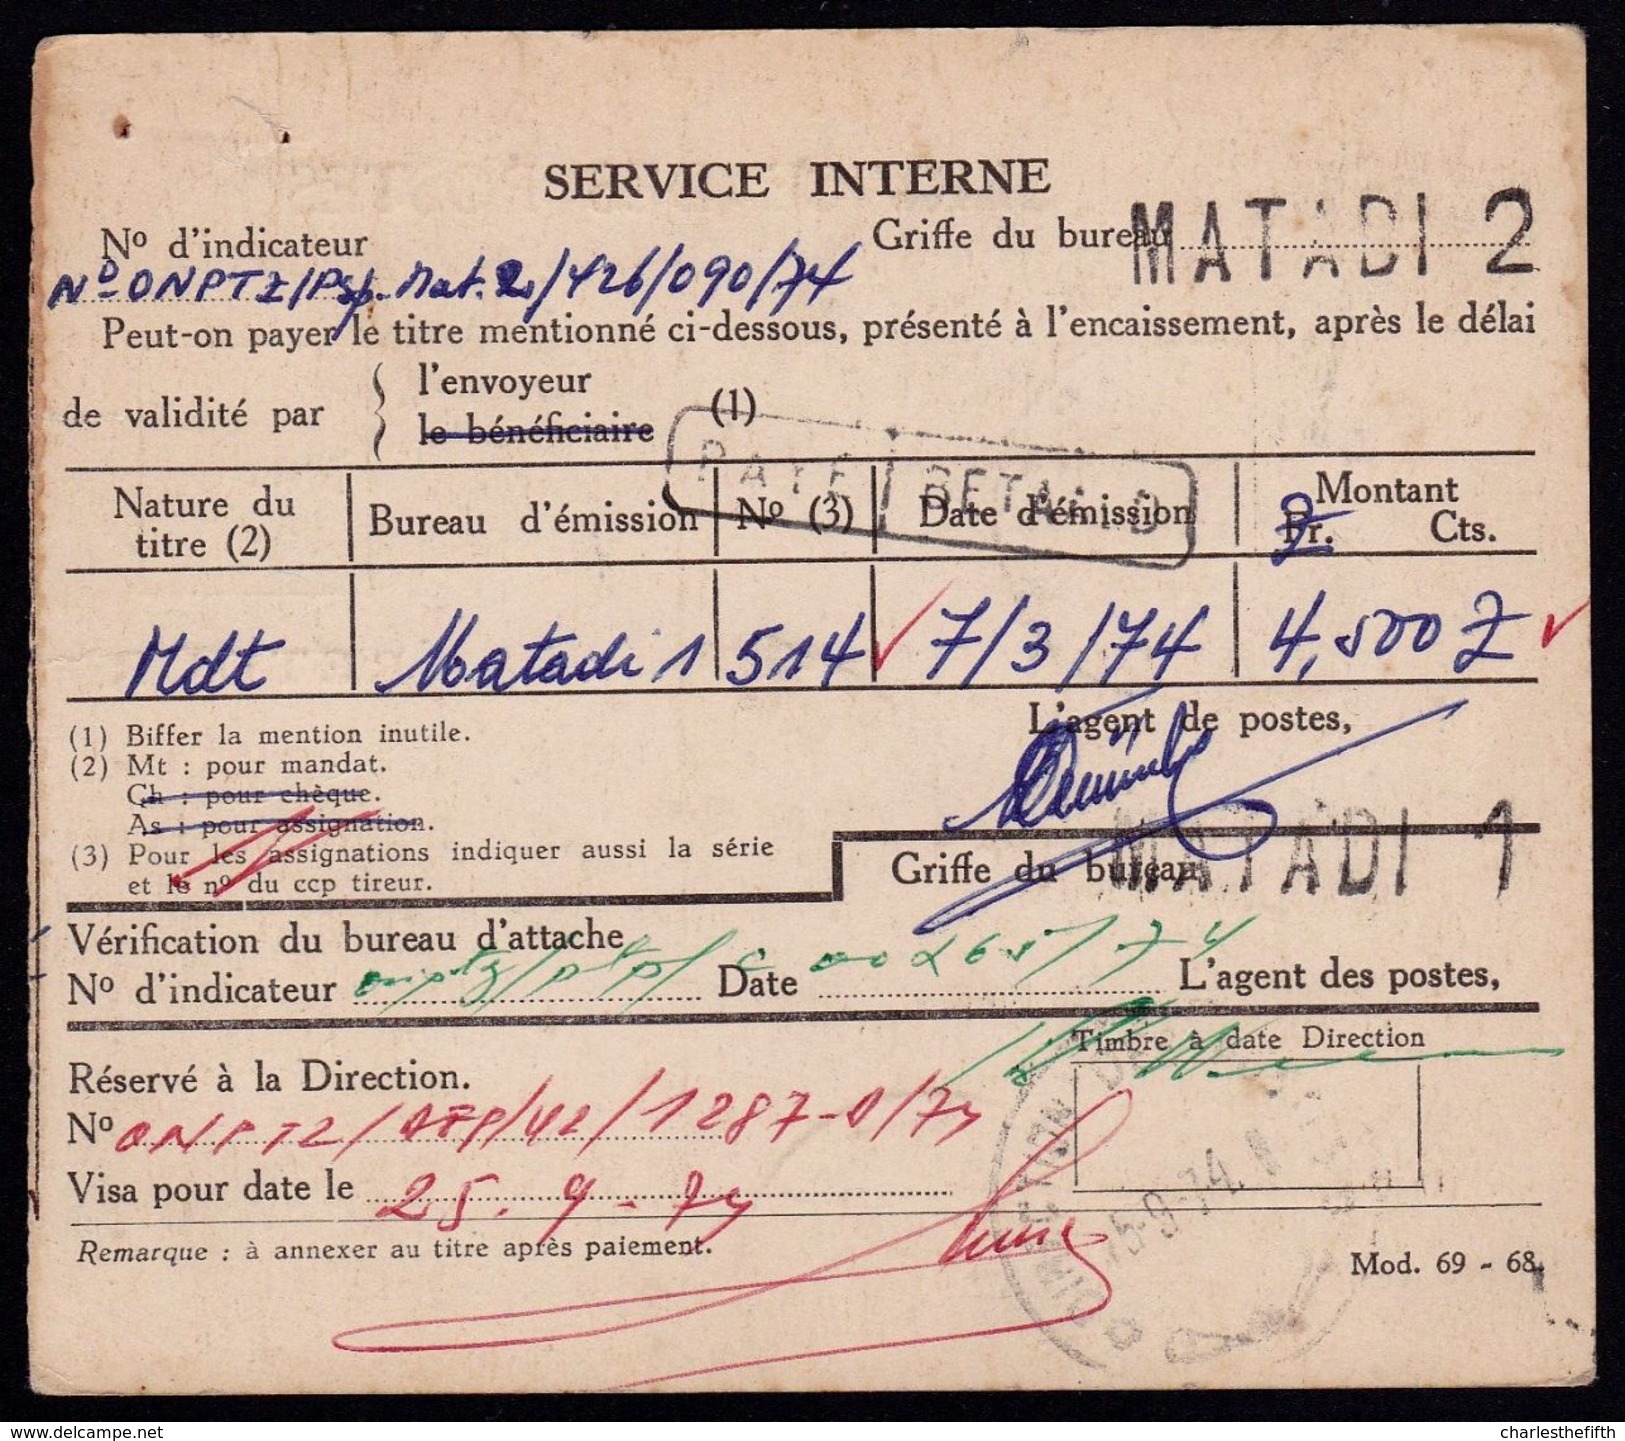 SERVICE INTERNE
Nº d'indicateur
Griffe du bureau MATADI 2
Nº ONPTZ/Psp. Mat. 2/426/090/74
Peut-on payer le titre mentionné ci-dessous, présenté à l'encaissement, après le délai
de validité par { l'envoyeur
le bénéficiaire (1)
PAYE BETAALD
Nature du titre (2) Bureau d'émission Nº (3) Date d'émission Montant
Fr. Z Cts.
Mdt Matadi 1 514 7/3/74 4,500 Z
(1) Biffer la mention inutile.
L'agent de postes,
(2) Mt : pour mandat.
Ch : pour chèque.
As : pour assignation.
(3) Pour les assignations indiquer aussi la série
et le nº du ccp tireur.
Griffe du bureau MATADI 1
Vérification du bureau d'attache
Nº d'indicateur Date L'agent des postes,
Timbre à date Direction
Réservé à la Direction.
Nº ONPTZ/ /42/1287-0/74
Visa pour date le 25.9.74
5-9-74
Remarque : à annexer au titre après paiement.
Mod. 69 - 68.
delcampe.net
charlesthefifth